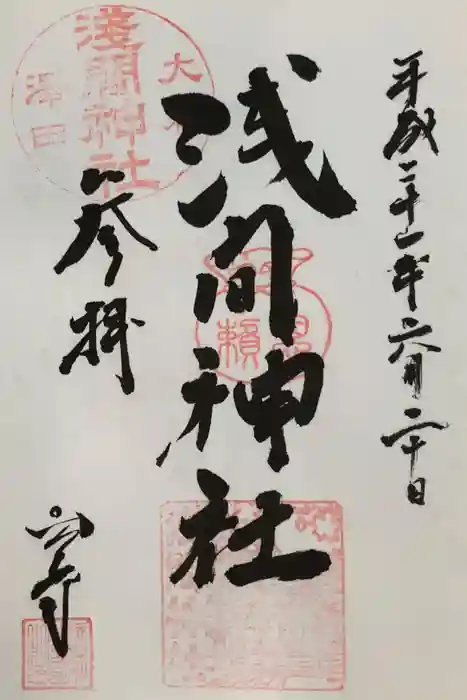 平成二十一年六月二十日
浅間神社
参拝
宮寺
淺間神社
大
澤田
頼